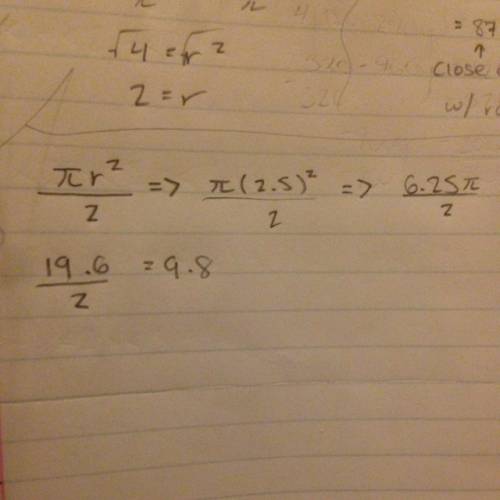 √4 = √r²
= 87
↑
close
2 = r
w/
πr²/2 => π(2.5)²/2 => 6.25π/2
19.6/2 = 9.8